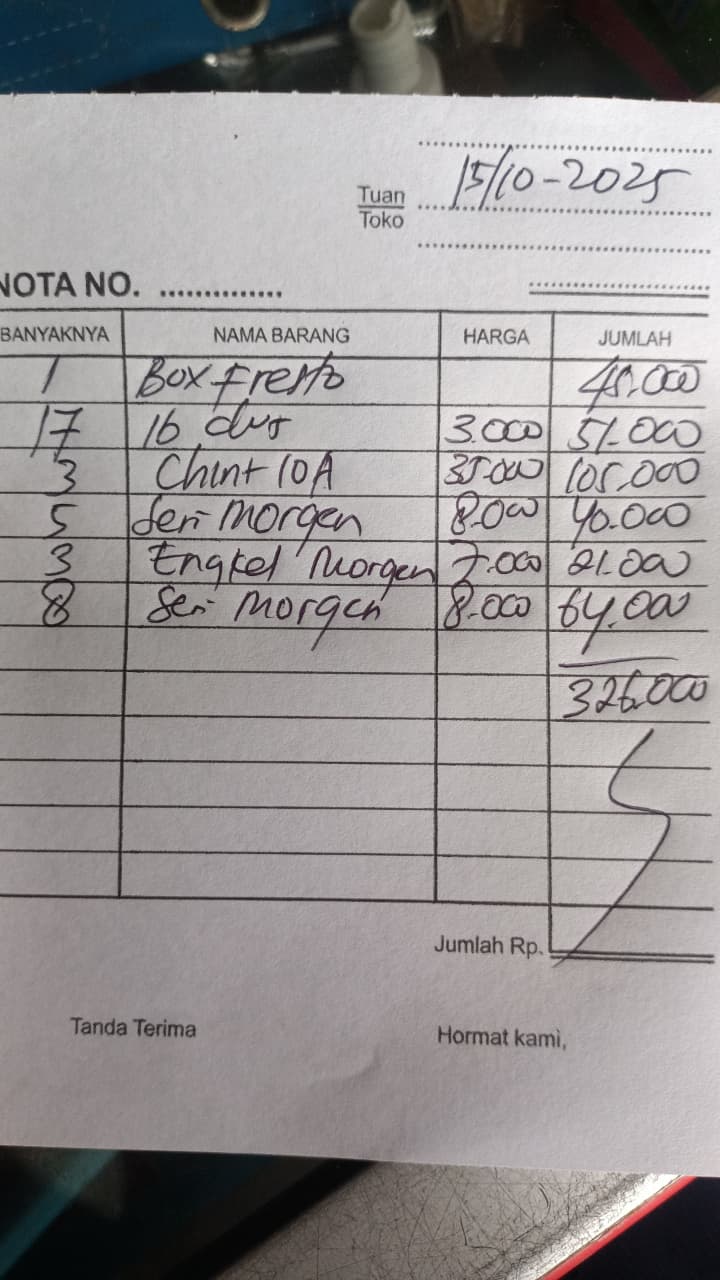 15/10-2025
Tuan
Toko
NOTA NO. ..............
BANYAKNYA NAMA BARANG HARGA JUMLAH
1 Box Fresto 45.000
17 16 dus 3.000 51.000
3 Chint 10A 35.000 105.000
5 Seri Morgen 8.000 40.000
3 Engkel Morgen 7.000 21.000
8 Seri Morgen 8.000 64.000
326.000
Jumlah Rp.
Tanda Terima Hormat kami,